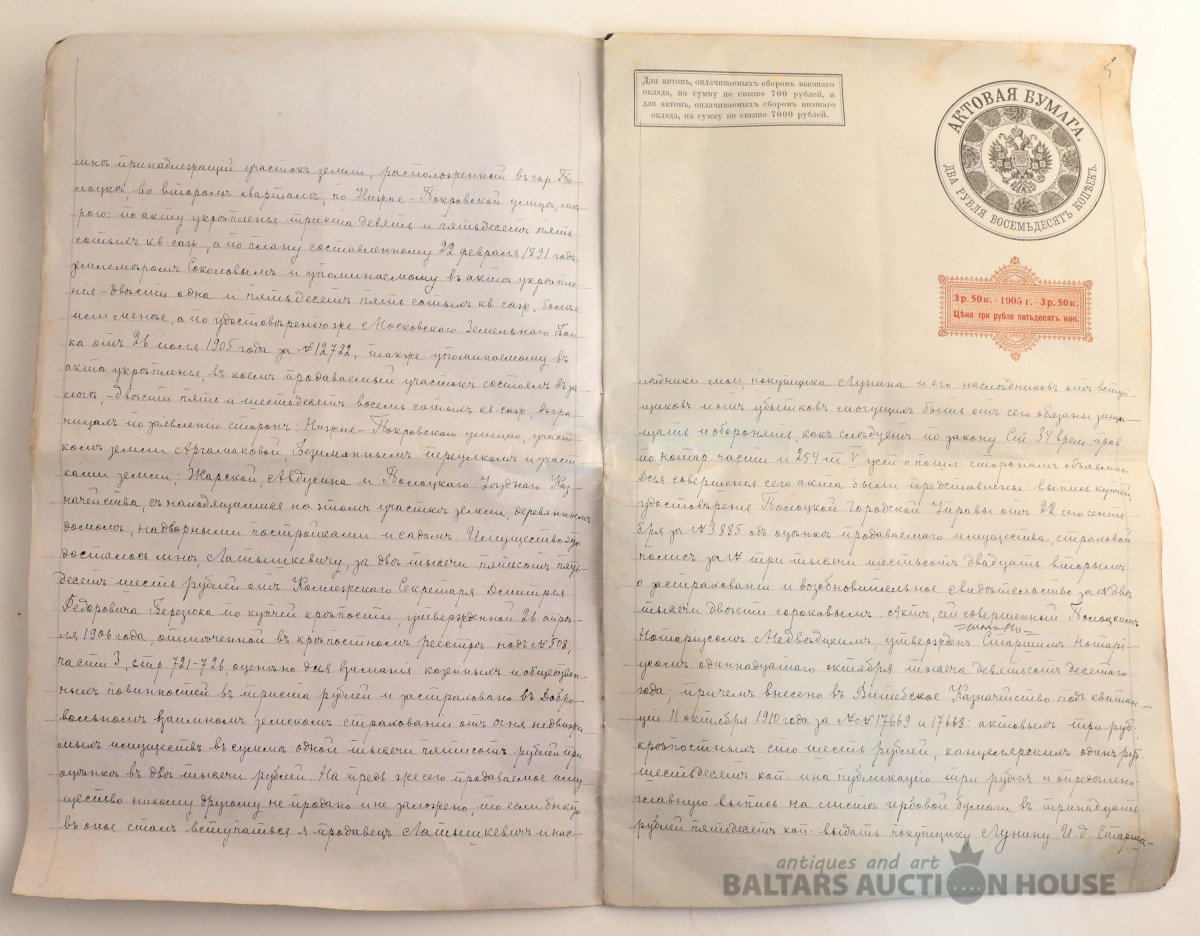 мнѣ принадлежащій участокъ земли, расположенный въ гор. По-
лоцкѣ, во второмъ кварталѣ, по Нижне-Покровской улицѣ, мѣ-
рою: по акту укрѣпленья триста девять и пятьдесятъ пять
сотыхъ кв. саж., а по плану составленному 22 февраля 1891 года
землемѣромъ Соколовымъ и упоминаемому въ актѣ укрѣпле-
нія - двѣсти одна и пятьдесятъ пять сотыхъ кв. саж. болѣе
или менѣе, а по удостовѣренію же Московскаго Земельнаго Бан-
ка отъ 26 іюля 1905 года за № 12722, также упоминаемому въ
актѣ укрѣпленья, въ коемъ продаваемый участокъ состоялъ въ за-
логѣ, - двѣсти пять и шестьдесятъ восемь сотыхъ кв. саж., въ гра-
ницахъ по заявленію сторонъ: Нижне-Покровской улицею, участ-
комъ земли Аргамаковой Безимяннымъ переулкомъ и участ-
ками земли: Жарской, Авдусина и Полоцкаго Уѣзднаго Каз-
начейства, съ находящимися на этомъ участкѣ земли, деревяннымъ
домомъ, надворными постройками и садомъ. Имущество это
досталось мнѣ, Латышкевичу, за двѣ тысячи пятьсотъ пять-
десятъ шесть рублей отъ Коллежскаго Секретаря Дмитрія
Ѳедоровича Березока по купчей крѣпости, утвержденной 26 апрѣ-
ля 1906 года отмѣченной въ крѣпостномъ реестрѣ подъ № 508,
части 3, стр. 721-726, оцѣнено для взиманія казенныхъ и обществен-
ныхъ повинностей въ триста рублей и застраховано въ Добро-
вольномъ взаимномъ земскомъ страхованіи отъ огня недвижи-
мыхъ имуществъ въ суммѣ одной тысячи рублей при
оцѣнкѣ въ двѣ тысячи рублей. На предь же сего продаваемое иму-
щество никому другому не продано и не заложено, то если бы кто
въ оное сталъ вступаться я продавецъ Латышкевичъ и нас-
Для актовъ, оплачиваемыхъ сборомъ высшаго
оклада, на сумму не свыше 700 рублей, и
для актовъ, оплачиваемыхъ сборомъ низшаго
оклада, на сумму не свыше 7000 рублей.
АКТОВАЯ БУМАГА.
ДВА РУБЛЯ ВОСЕМЬДЕСЯТЪ КОПѢЕКЪ.
3 р. 50 к. - 1905 г. - 3 р. 50 к.
Цѣна три рубля пятьдесятъ коп.
лѣдники мои, покупщика Лунина и его наслѣдниковъ отъ вступ-
щиковъ и отъ убытковъ могущихъ быть отъ сего обязаны защи-
щать и оборонять, какъ слѣдуетъ по закону. Ст. 34 врем. прав.
по нотар. части и 254 т. V уст. о пошл. сторонамъ объявлены.
Для совершенія сего акта были представлены: выпись купчей,
удостовѣреніе Полоцкой Городской Управы отъ 22 сего сентя-
бря за № 3885 объ оцѣнкѣ продаваемаго имущества, страховой
полисъ за № три тысячи шестьсотъ двадцать вторымъ
о застрахованіи и возобновительное свидѣтельство за № двѣ
тысячи двѣсти сороковымъ. Актъ сей совершенный Полоцкимъ
Нотаріусомъ Медвѣдскимъ, утвержденъ Старшимъ Нотарі-
усомъ одиннадцатаго октября тысяча девятьсотъ десятаго
года, причемъ внесено въ Витебское Казначейство подъ квитан-
ціи 11 октября 1910 года за №№ 17669 и 17668: актовыхъ три руб.
крѣпостныхъ сто шесть рублей, канцелярскихъ одинъ руб.
шестьдесятъ коп. и на публикацію три рубля и опредѣлено
главную выпись на листѣ гербовой бумаги въ тринадцать
рублей пятьдесятъ коп. выдать покупщику Лунину. И. д. Старша-
antiques and art
BALTARS AUCTION HOUSE